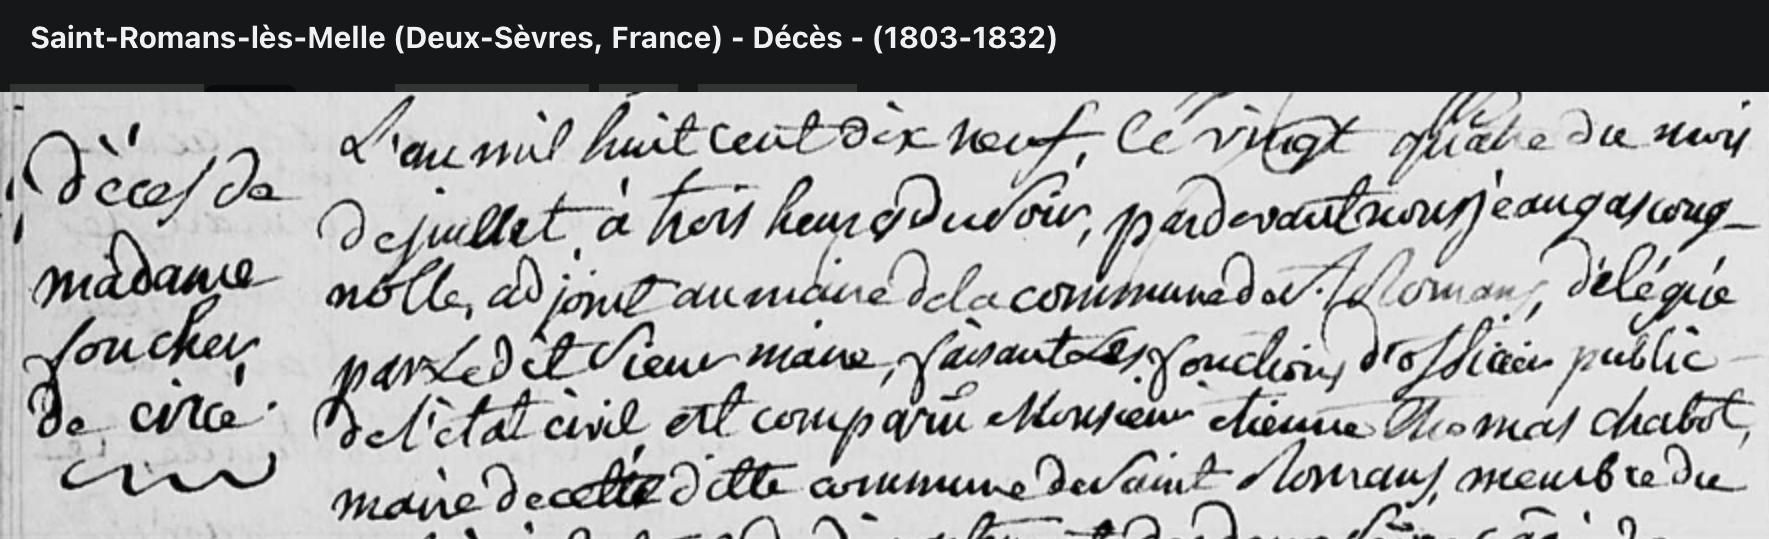 Saint-Romans-lès-Melle (Deux-Sèvres, France) - Décès - (1803-1832)
dècès de
madame
foucher
de circé.
L'an mil huit cent dix neuf, le vingt quatre du mois
de juillet, à trois heures du soir, pardevant nous jean gascoug-
nolle, adjoint au maire de la commune de St. Romans, délégué
par le dit sieur maire, faisant les fonctions d'officier public
de l'état civil, est comparû Monsieur etienne Thomas chabot,
maire de cette ditte commune de saint Romans, membre du